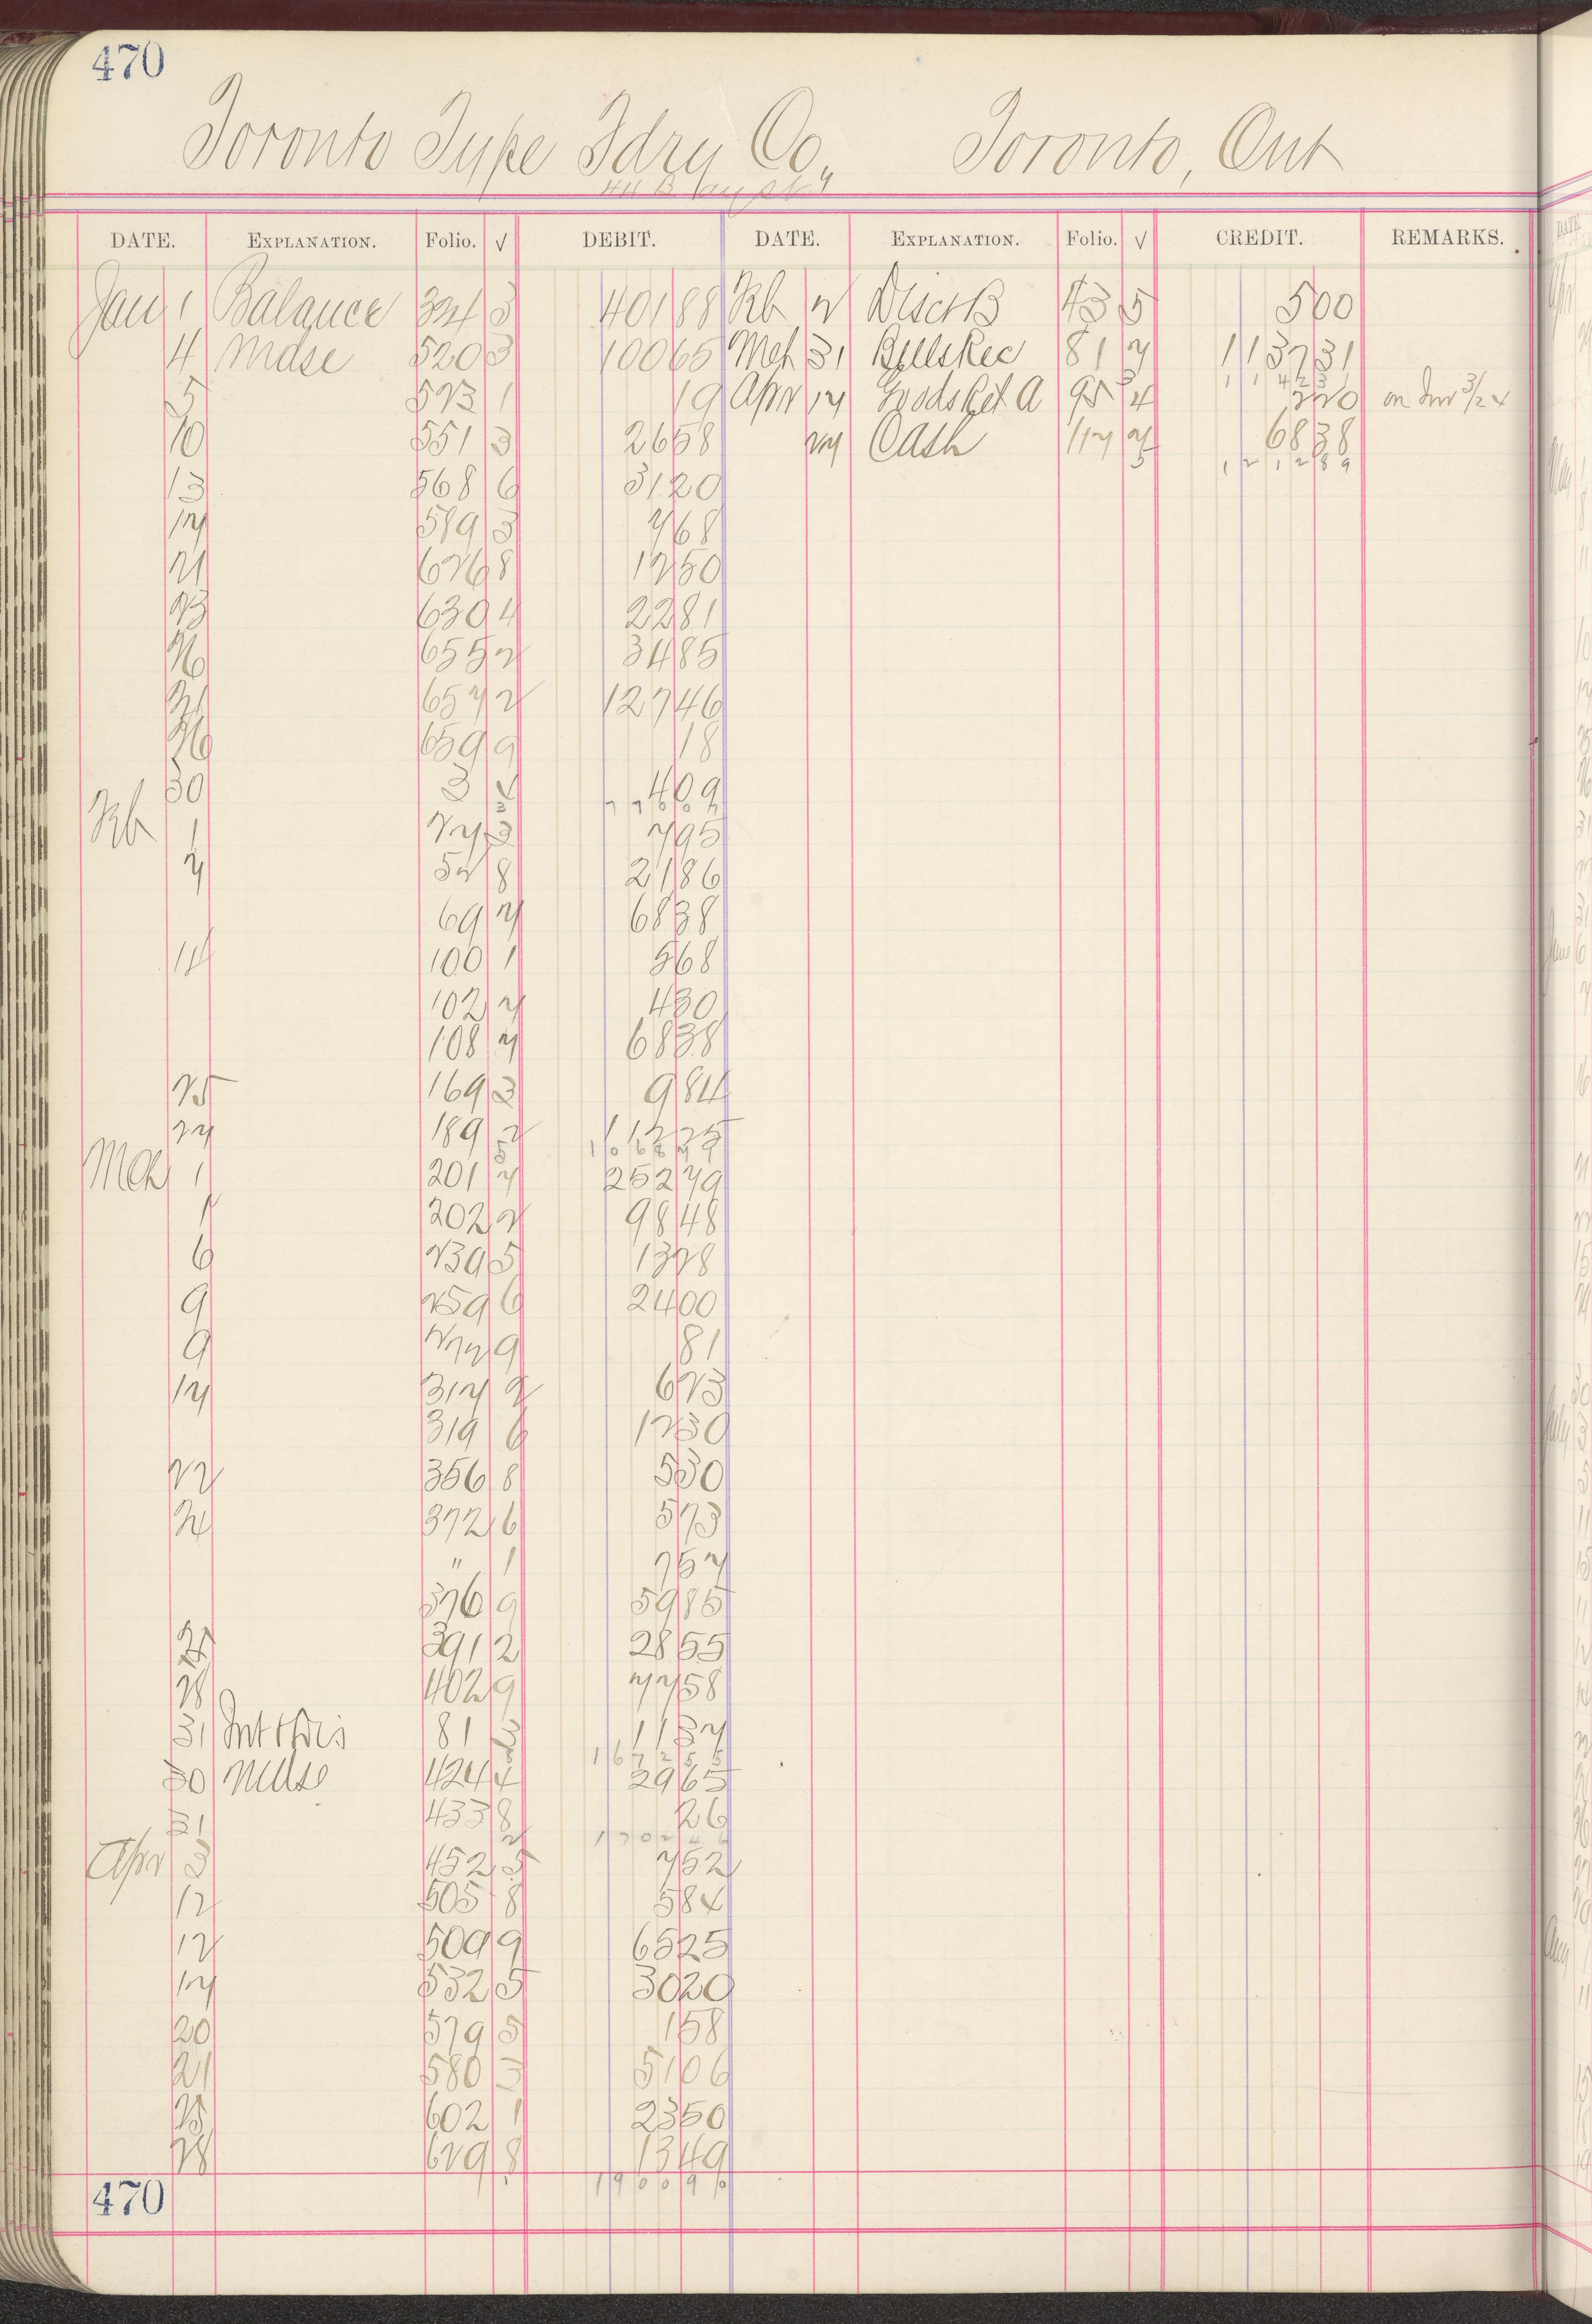 470
Toronto Type Fdry Co., Toronto, Ont
44 Bay St
DATE. EXPLANATION. Folio. √ DEBIT. DATE. EXPLANATION. Folio. √ CREDIT. REMARKS.
Jan 1 Balance 324 3 401 88 Feb 2 Disct B 43 5 5 00
4 Mdse 520 3 100 65 Mch 31 Bills Rec 81 7 1137 31
5 573 1 19 Apr 17 Goods Ret A 95 4 2 20 on Inv 3/24
10 551 3 26 58 27 Cash 117 7 68 38
13 568 6 31 20
17 589 3 7 68
21 626 8 12 50
23 630 4 22 81
26 655 2 34 85
657 2 127 46
26 659 9 18
30 3 4 09
Feb 1 27 3 7 95
7 52 8 21 86
69 7 68 38
14 100 1 5 68
102 7 4 80
108 7 68 38
25 169 3 9 84
27 189 2
Mch 1 201 7 252 79
1 202 2 98 48
6 239 5 13 78
9 259 6 24 00
9 277 9 81
17 317 9 6 73
319 6 12 50
22 356 8 5 50
24 372 6 5 73
" 1 7 57
376 9 59 85
25 391 2 28 55
28 402 9 77 58
31 Int & Dis 81 11 57
30 Mdse 424 4 29 65
31 433 8 26
Apr 3 452 5 7 52
12 505 8 5 84
12 509 9 65 25
17 532 5 30 20
20 579 5 1 58
21 580 3 51 06
25 602 1 23 50
28 629 8 13 49
1900 90
470